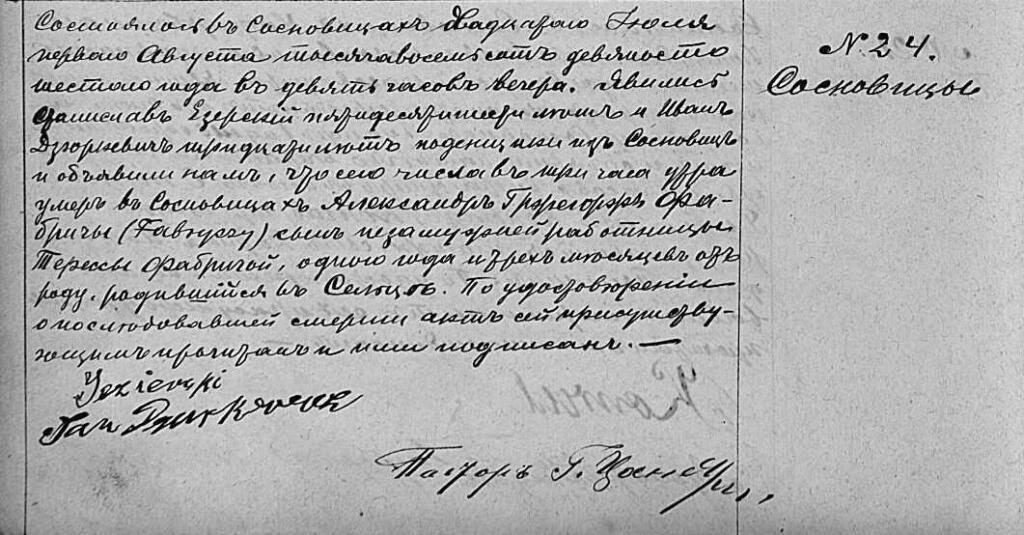 Состоялось въ Сосновицахъ двадцатаго Іюля
перваго Августа тысяча восемьсотъ девяносто
шестого года въ девять часовъ вечера. Явились
Станиславъ Езерскій пятидесяти лѣтъ и Иванъ
тридцати лѣтъ поденщики изъ Сосновицъ
и объявили намъ, что сего числа въ три часа утра
умеръ въ Сосновицахъ Александръ Гржегоржъ Фа-
бричы (Fabryczy) сынъ незамужней работницы
Терессы Фабричой, одного года и трехъ мѣсяцевъ отъ
роду, родившійся въ Сельцѣ. По удостовѣреніи
о послѣдовавшей смерти актъ сей присутству-
ющимъ прочитанъ и ими подписанъ. —
Jezierski
Jan
Пасторъ Г.
N. 24.
Сосновицы